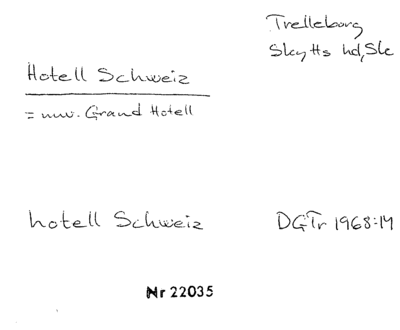 Trelleborg
Skytts hd, Sk
Hotell Schweiz
= nuv. Grand Hotell
hotell Schweiz DGTr 1968:14
Nr 22035